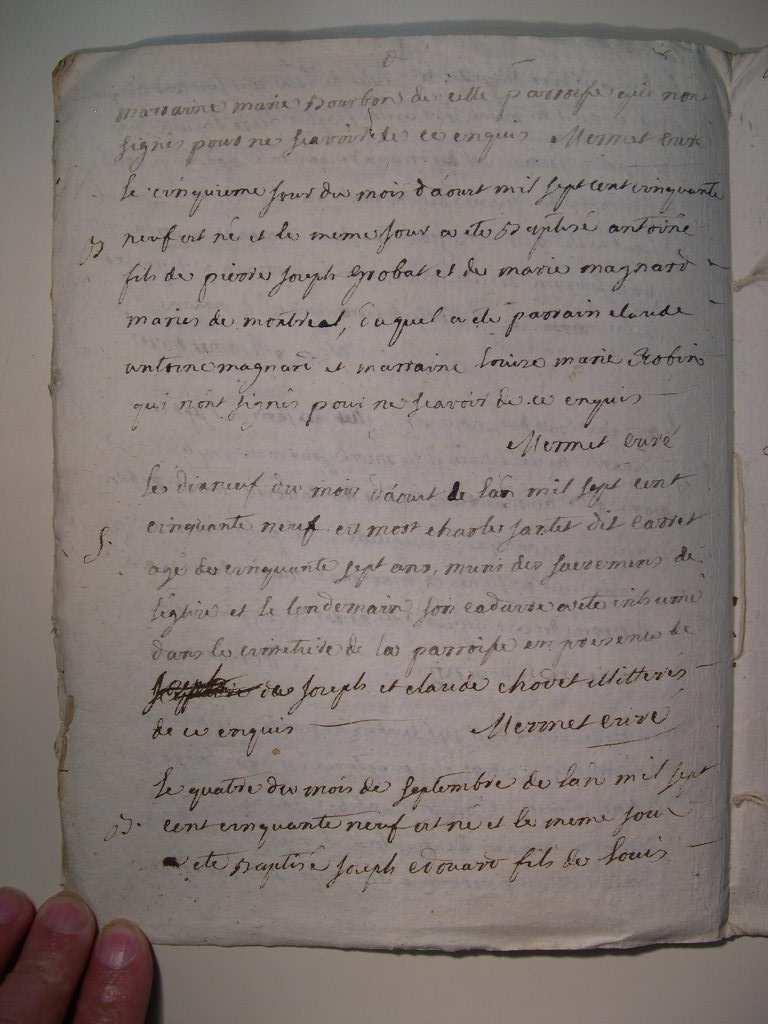 marraine marie Bourbon de cette parroisse qui nont
signés pour ne scavoir de ce enquis Mermet curé
le cinquieme jour du mois d'aoust mil sept cent cinquante
B neuf est né et le meme jour a ete Baptisé antoine
fils de pierre joseph Grobat et de marie magnard
mariés de montreal, duquel a ete parrain claude
antoine magnard et marraine louise marie Robin
qui nont signés pour ne scavoir de ce enquis
Mermet curé
le dixneuf du mois d'aoust de lan mil sept cent
S. cinquante neuf est mort charles jantet dit carret
agé de cinquante sept ans, muni des sacremens de
l'église et le lendemain son cadavre a ete inhumé
dans le cimetiere de la parroisse en presence de
de joseph et claude chovet illitterés
de ce enquis Mermet curé
le quatre du mois de septembre de lan mil sept
B. cent cinquante neuf est né et le meme jour
a ete Baptisé joseph edouard fils de louis